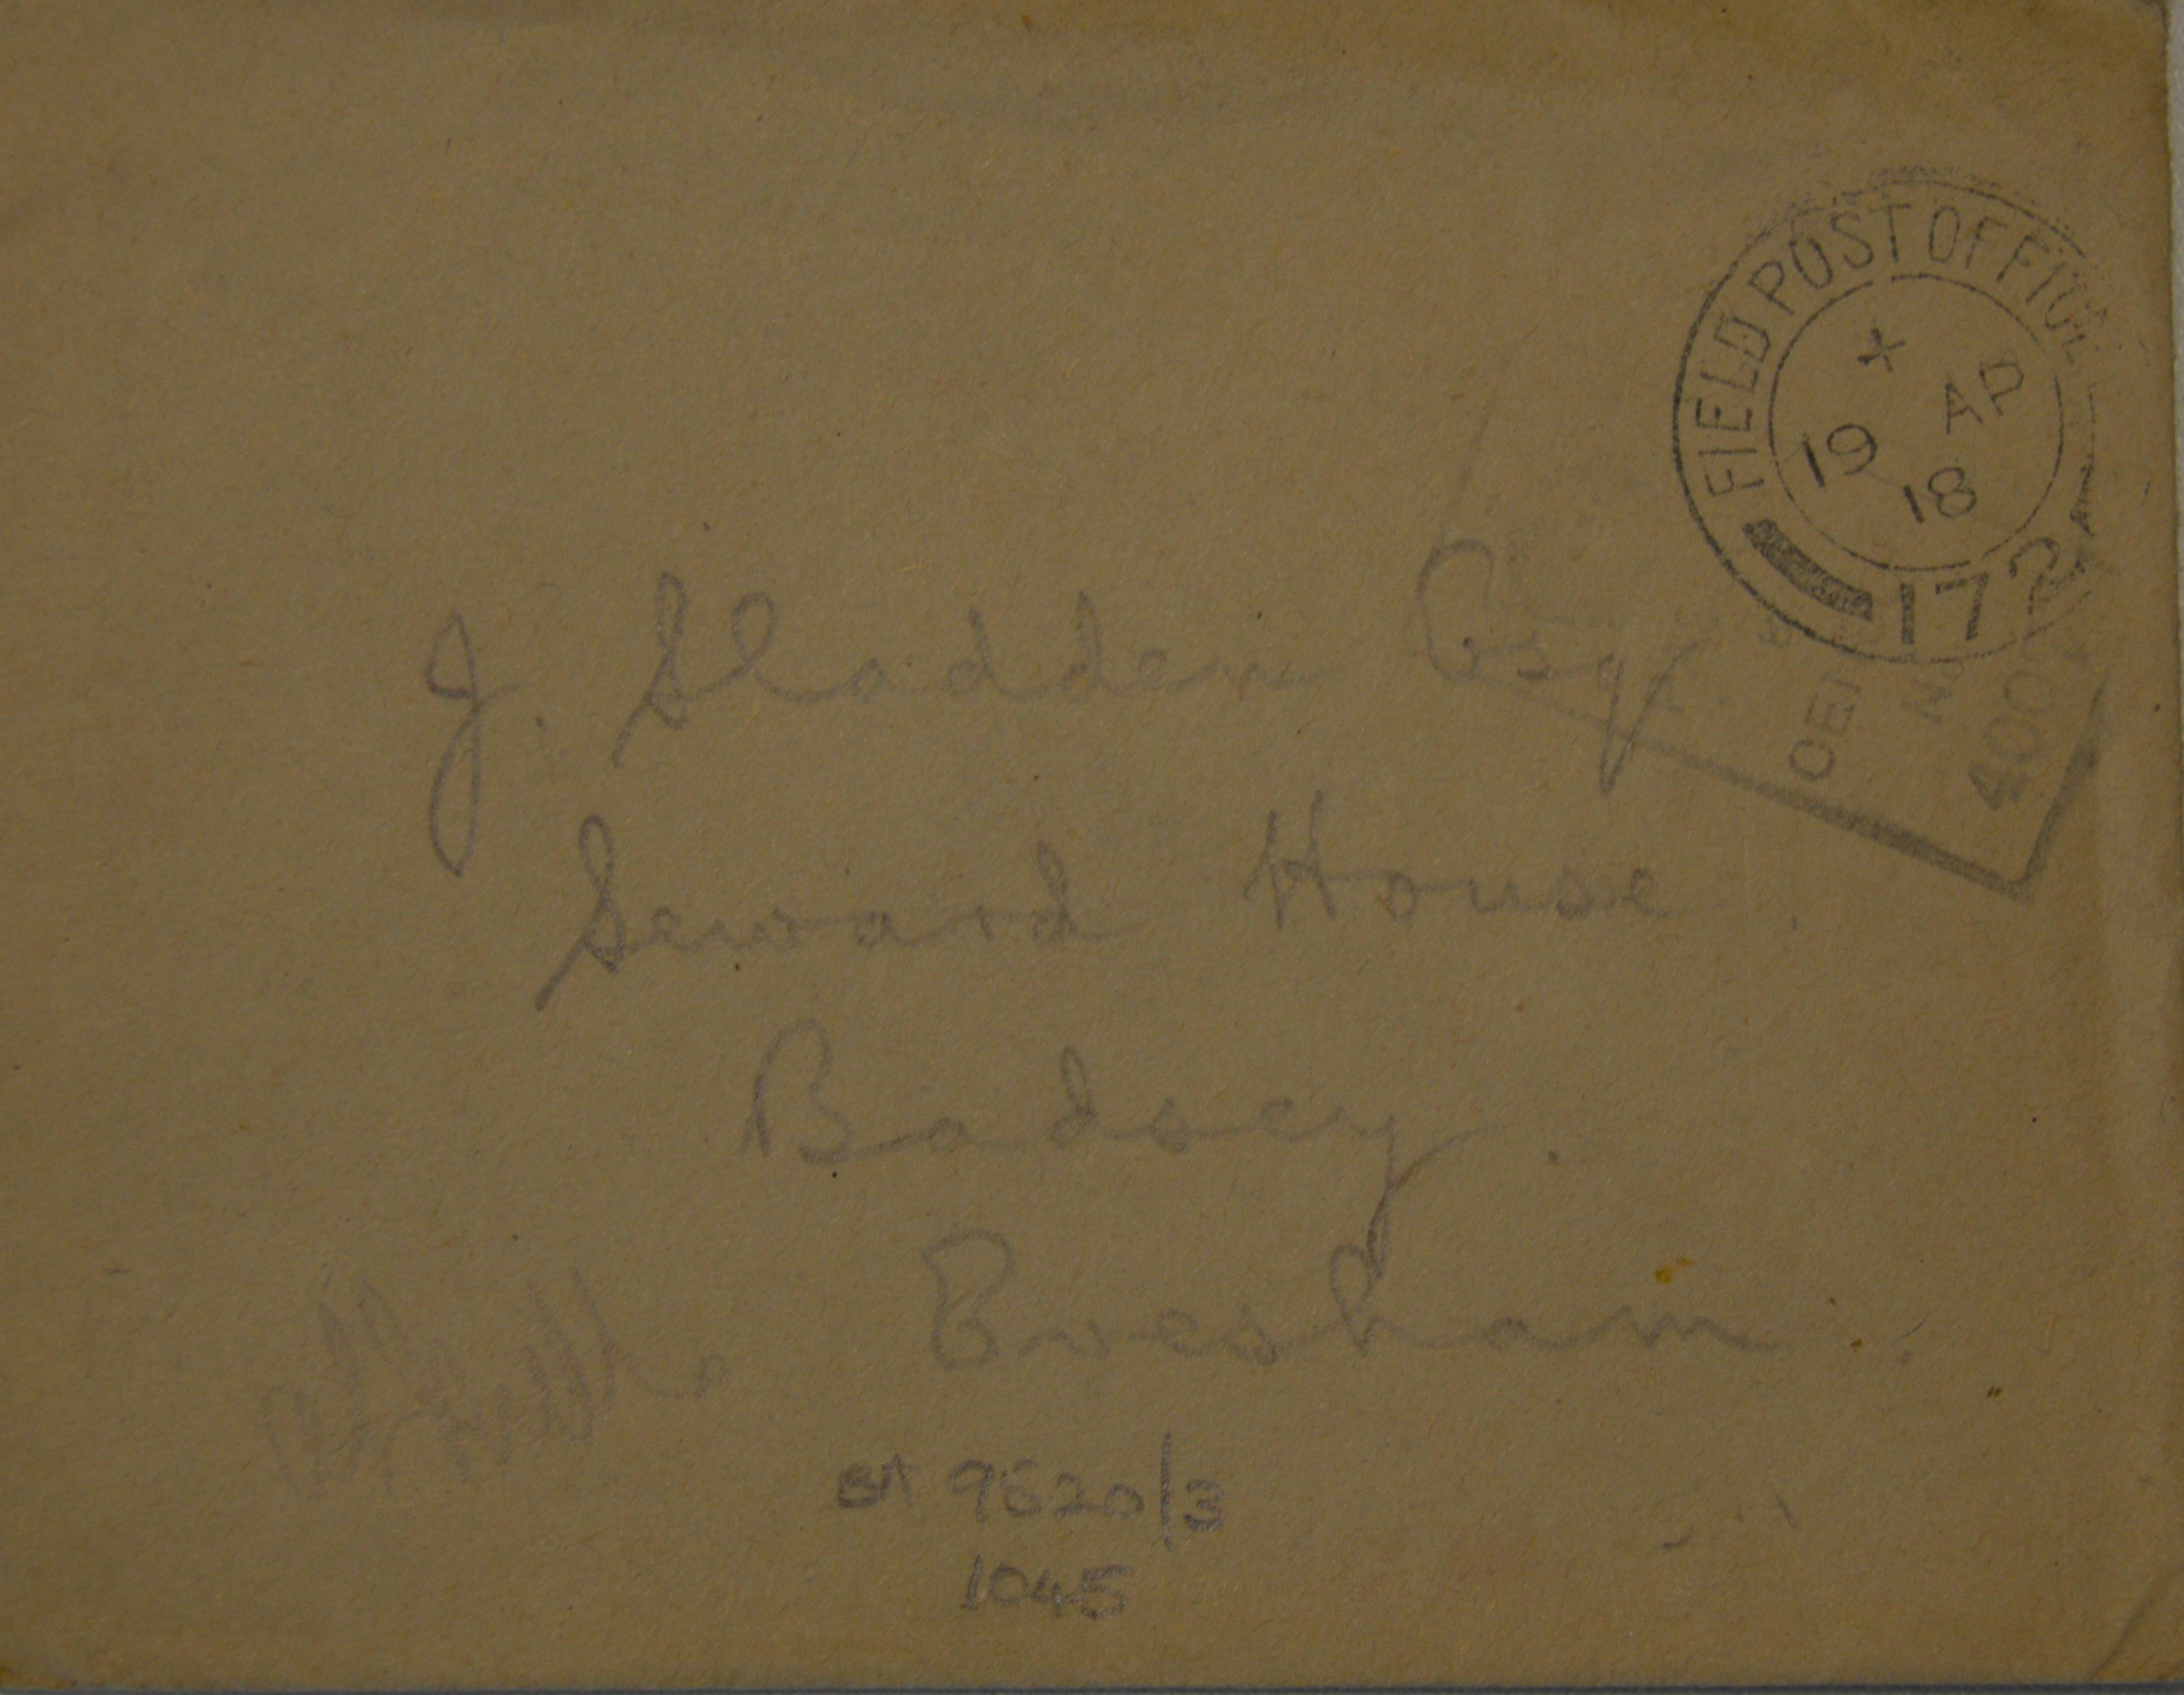 FIELD POST OFFICE
AP
19
18
172
J. Sladden Esqr.
400
Seward House
Badsey.
Evesham.
9620/3
1045